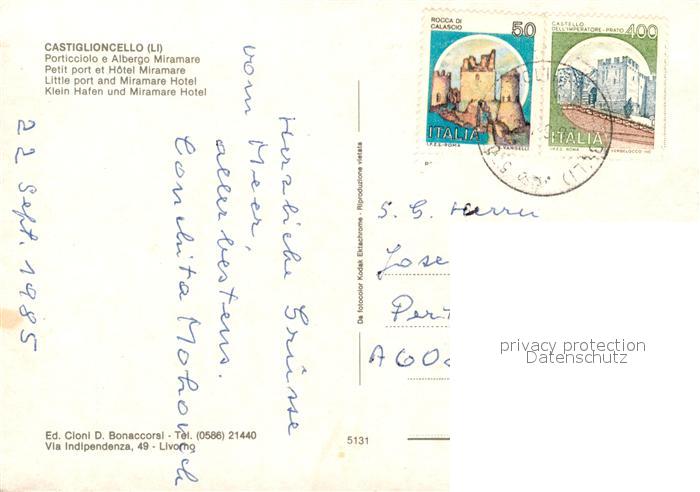 CASTIGLIONCELLO (LI)
Porticciolo e Albergo Miramare
Petit port et Hôtel Miramare
Little port and Miramare Hotel
Klein Hafen und Miramare Hotel
22 Sept. 1985
Herzliche Grüsse
vom Meer,
allerbestens.
Conchita
Ed. Cioni D. Bonaccorsi - Tel. (0586) 21440
Via Indipendenza, 49 - Livorno
5131
Da fotocolor Kodak Ektachrome - Riproduzione vietata
ROCCA DI CALASCIO
50
ITALIA
I.P.Z.S. - ROMA
VANGELLI
CASTELLO DELL'IMPERATORE - PRATO
400
ITALIA
I.P.Z.S. ROMA
S. G. Herrn
Jose
Per
A 60
privacy protection
Datenschutz